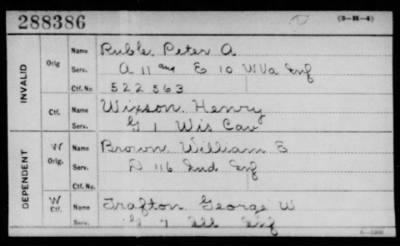 288386 (3-M-4)
INVALID
Orig Name Ruble, Peter A
Serv. A 11 and E 10 W Va Inf
Ctf. No. 522 563
Ctf. Name Wixson, Henry
Serv. G 1 Wis Cav
DEPENDENT
W Orig. Name Brown, William E
Serv. D 116 Ind Inf
Ctf. No.
W Ctf. Name Trafton, George W
Serv. G 7 Ill Inf